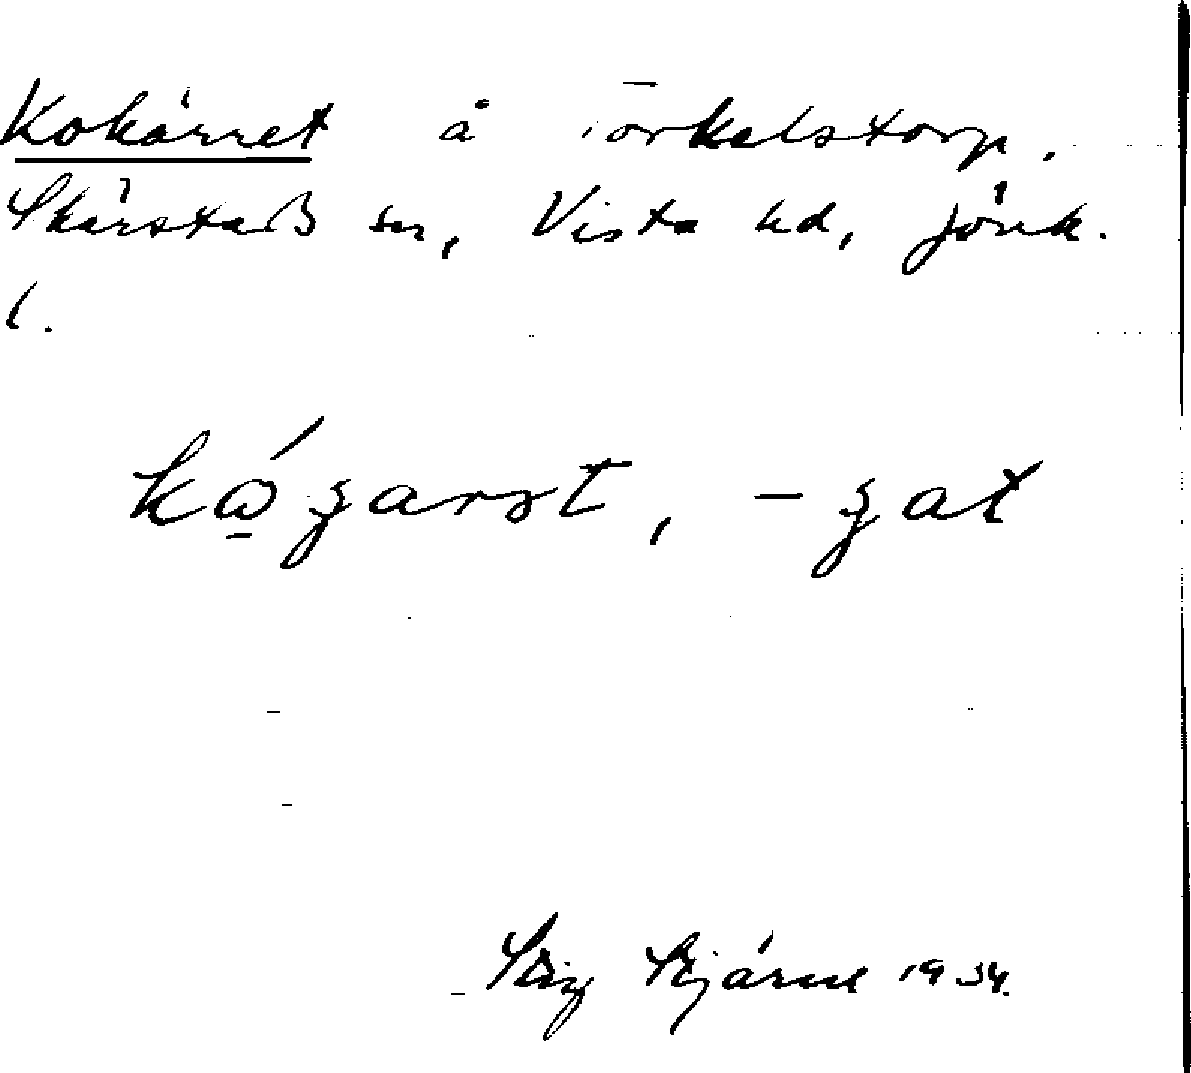 Kokärret å Torkelstorp.
Skärstads sn, Vista hd, Jönk.
l.
kǻgarst, -gat
Stig Stjärne 1934.